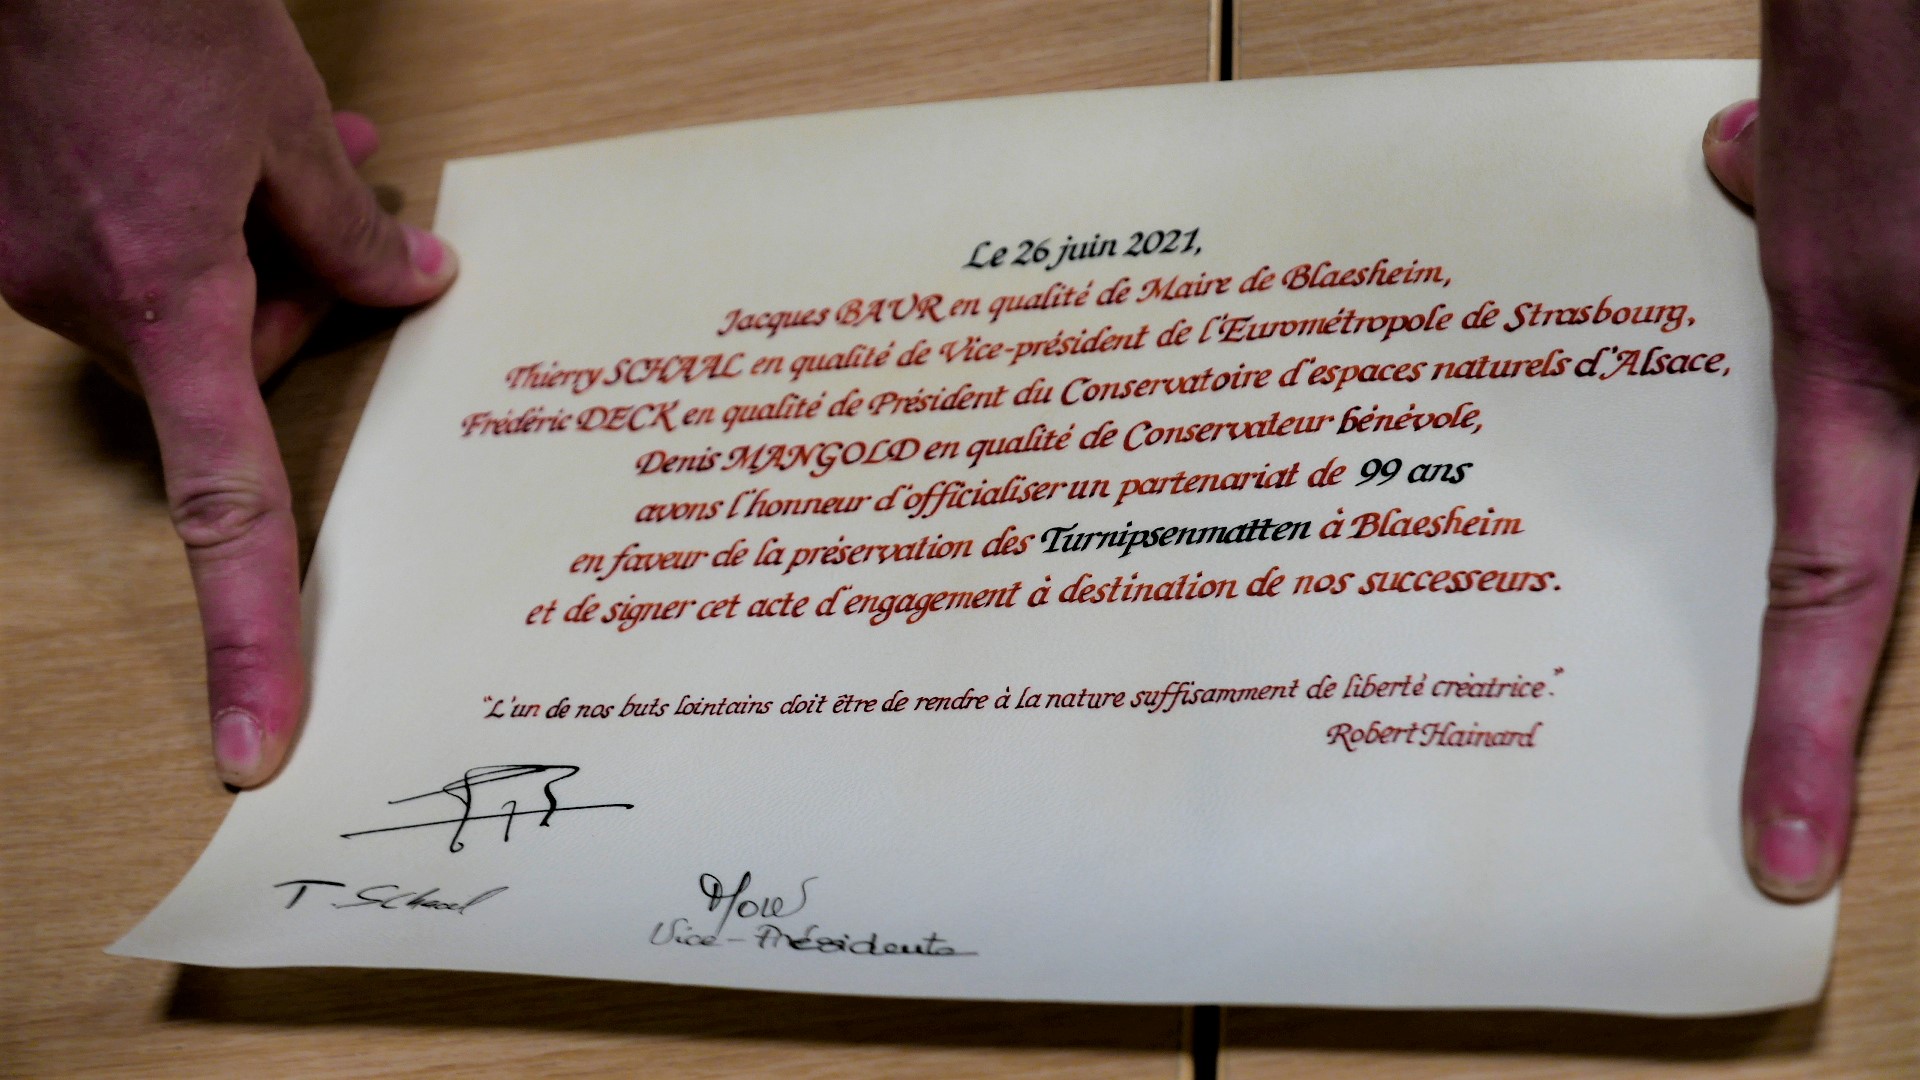 Le 26 juin 2021,
Jacques BAUR en qualité de Maire de Blaesheim,
Thierry SCHAAL en qualité de Vice-président de l'Eurométropole de Strasbourg,
Frédéric DECK en qualité de Président du Conservatoire d'espaces naturels d'Alsace,
Denis MANGOLD en qualité de Conservateur bénévole,
avons l'honneur d'officialiser un partenariat de 99 ans
en faveur de la préservation des Turnipsenmatten à Blaesheim
et de signer cet acte d'engagement à destination de nos successeurs.
"L'un de nos buts lointains doit être de rendre à la nature suffisamment de liberté créatrice."
Robert Hainard
T. Schaal
Vice-Présidente